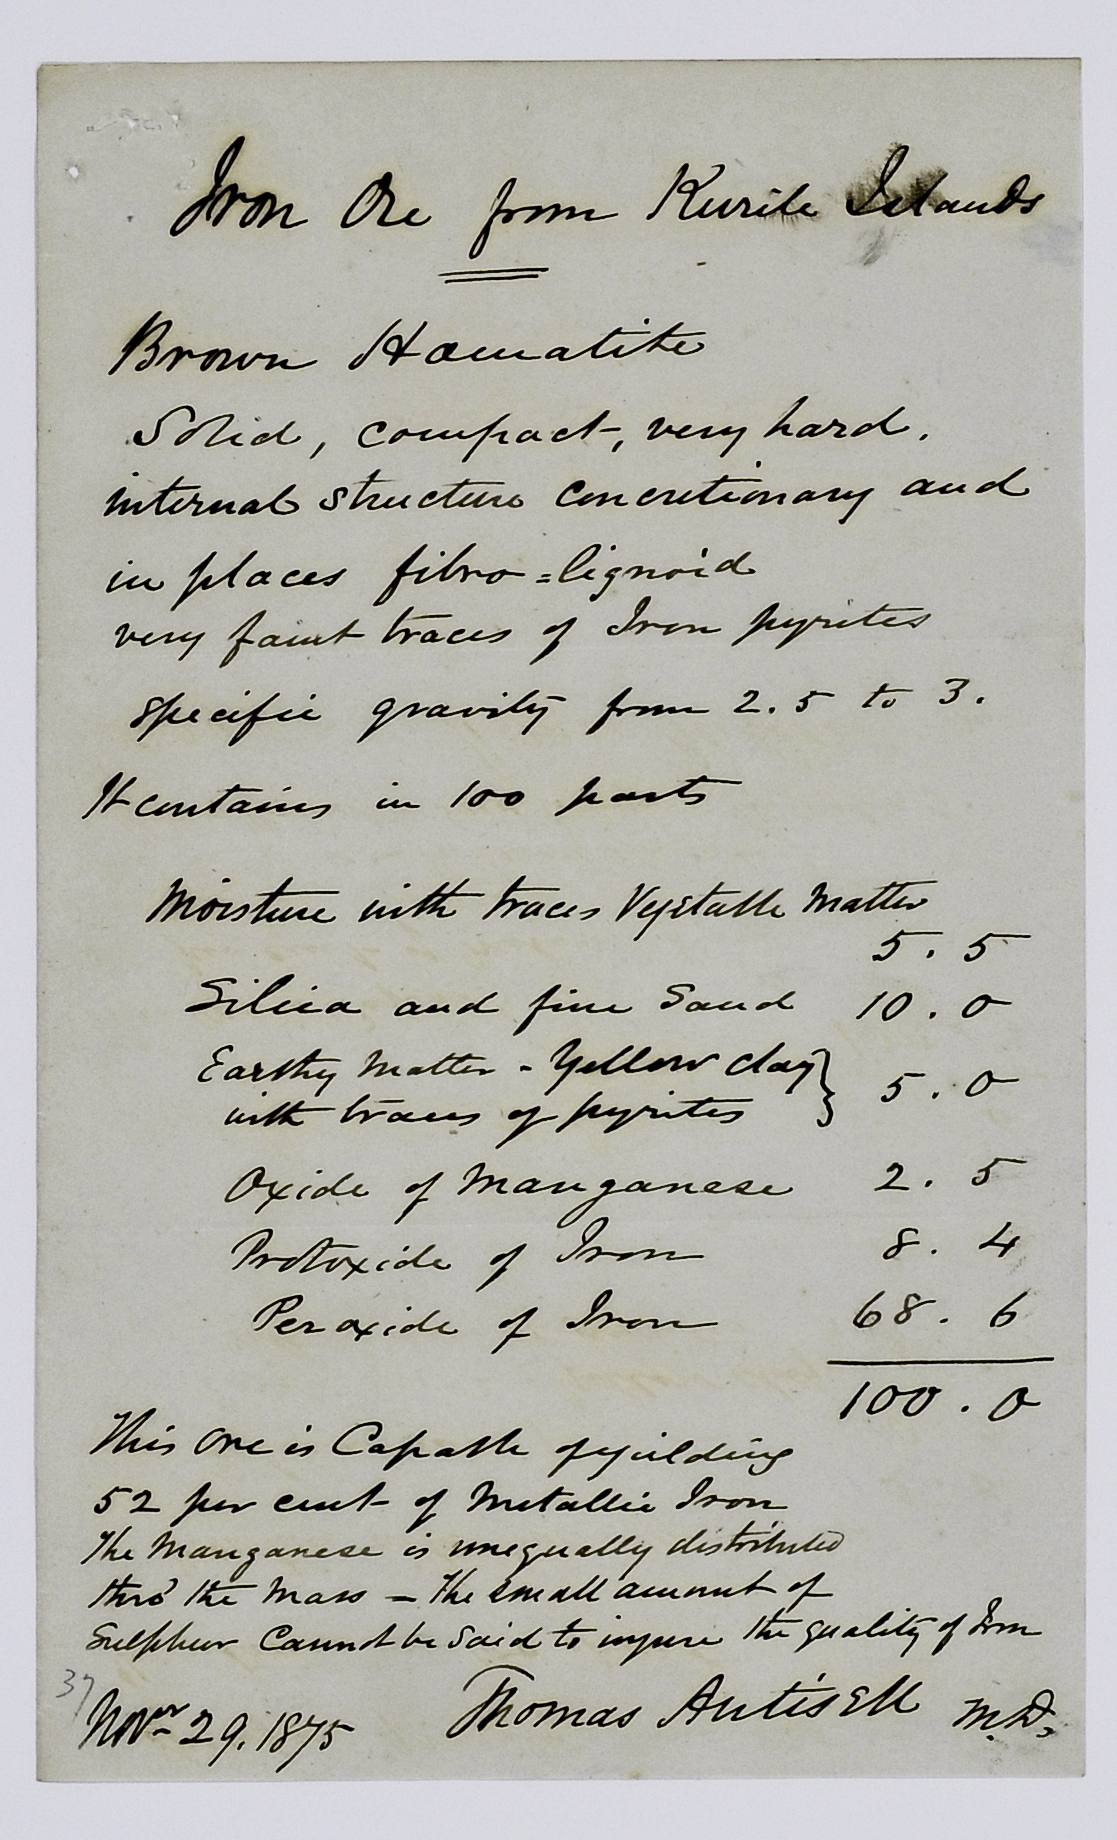 Iron Ore from Kurile Islands
Brown Hæmatite
Solid, compact, very hard.
internal structure concretionary and
in places fibro=lignoid
very faint traces of Iron pyrites
specific gravity from 2.5 to 3.
It contains in 100 parts
Moisture with traces Vegetable Matter
5.5
Silica and fine Sand 10.0
Earthy Matter - Yellow clay
with traces of pyrites } 5.0
Oxide of Manganese 2.5
Protoxide of Iron 8.4
Peroxide of Iron 68.6
100.0
This Ore is Capable of yielding
52 per cent of Metallic Iron
The Manganese is unequally distributed
thro' the Mass – The small amount of
Sulphur Cannot be said to injure the quality of Iron
37
Novr 29. 1875 Thomas Antisell M.D.